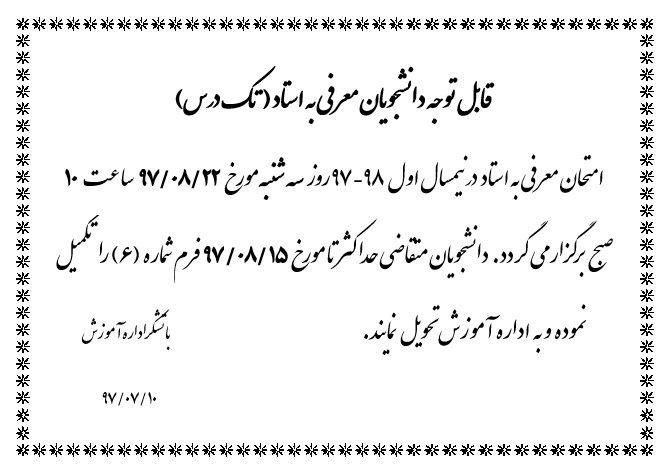 قابل توجه دانشجویان معرفی به استاد (تک درس)
امتحان معرفی به استاد در نیمسال اول ۹۸-۹۷ روز سه شنبه مورخ ۹۷/۰۸/۲۲ ساعت ۱۰
صبح برگزار می گردد. دانشجویان متقاضی حداکثر تا مورخ ۹۷/۰۸/۱۵ فرم شماره (۶) را تکمیل
نموده و به اداره آموزش تحویل نمایند.
با تشکر اداره آموزش
۹۷/۰۷/۱۰